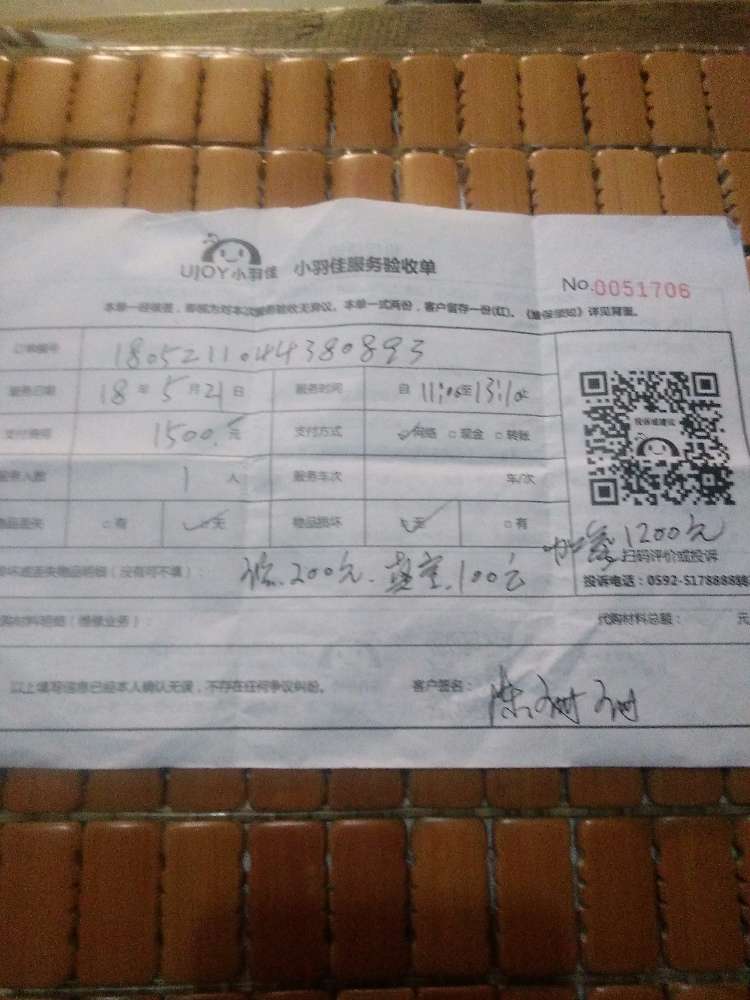 UJOY小羽佳 小羽佳服务验收单
No.0051706
本单一经保签，即视为对本次服务验收无异议。本单一式两份，客户留存一份(红)。《维保须知》详见背面。
订单编号 1805211044380893
服务日期 18 年 5 月 21 日 服务时间 自 11:00 至 13:10
支付费用 1500.元 支付方式 网络 现金 转账
投诉或建议
服务人数 1 人 服务车次 车/次
物品丢失 有 无 物品损坏 无 有
1200元
扫码评价或投诉
损坏或丢失物品明细（没有可不填）： 200元. 真空.100元
投诉电话：0592-5178888转
代购材料明细（维修业务）： 代购材料总额： 元
以上填写信息已经本人确认无误，不存在任何争议纠纷。 客户签名：